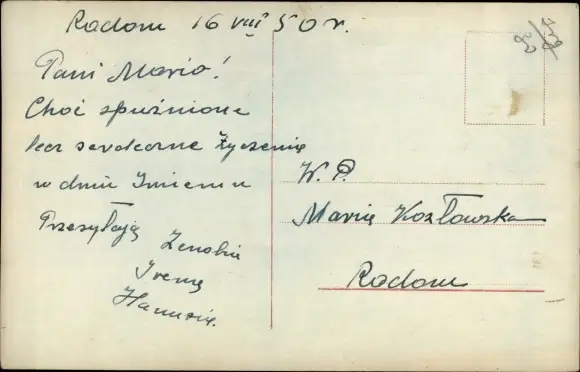 Radom 16 VIII 50 r.
Pani Mario!
Choć spuźnione
lecz serdeczne Życzenia
w dniu Imienin
Przesyłają
Zenobia
Irena
Hanusia.
W. P.
Maria Kozłowska
Radom